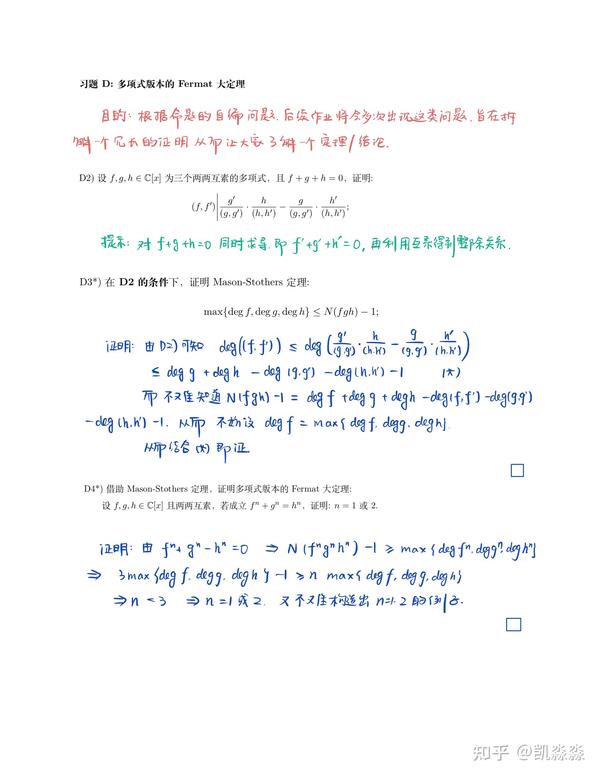 习题 D: 多项式版本的 Fermat 大定理
目的: 根据命题的自编问题. 后续作业将会多次出现这类问题. 旨在拆
解一个冗长的证明 从而让大家了解一个定理/结论.
D2) 设 f, g, h ∈ ℂ[x] 为三个两两互素的多项式，且 f + g + h = 0，证明:
(f, f') | g'/(g, g') · h/(h, h') − g/(g, g') · h'/(h, h');
提示: 对 f+g+h=0 同时求导. 即 f'+g'+h'=0, 再利用互素得到整除关系.
D3*) 在 D2 的条件下，证明 Mason-Stothers 定理:
max{deg f, deg g, deg h} ≤ N(fgh) − 1;
证明: 由 D2) 可知 deg((f,f')) ≤ deg(g'/(g,g') · h/(h,h') − g/(g,g') · h'/(h,h'))
≤ deg g + deg h − deg(g,g') − deg(h,h') − 1 (*)
而 不难知道 N(fgh) − 1 = deg f + deg g + deg h − deg(f,f') − deg(g,g')
− deg(h,h') − 1. 从而 不妨设 deg f = max{deg f, deg g, deg h}.
从而结合 (*) 即证
□
D4*) 借助 Mason-Stothers 定理，证明多项式版本的 Fermat 大定理:
设 f, g, h ∈ ℂ[x] 且两两互素，若成立 fⁿ + gⁿ = hⁿ，证明: n = 1 或 2.
证明: 由 fⁿ + gⁿ − hⁿ = 0 ⇒ N(fⁿgⁿhⁿ) − 1 ≥ max{deg fⁿ, deg gⁿ, deg hⁿ}
⇒ 3max{deg f, deg g, deg h} − 1 ≥ n max{deg f, deg g, deg h}
⇒ n < 3 ⇒ n = 1 或 2. 又不难构造出 n=1.2 的例子.
□
知乎 @凯淼淼